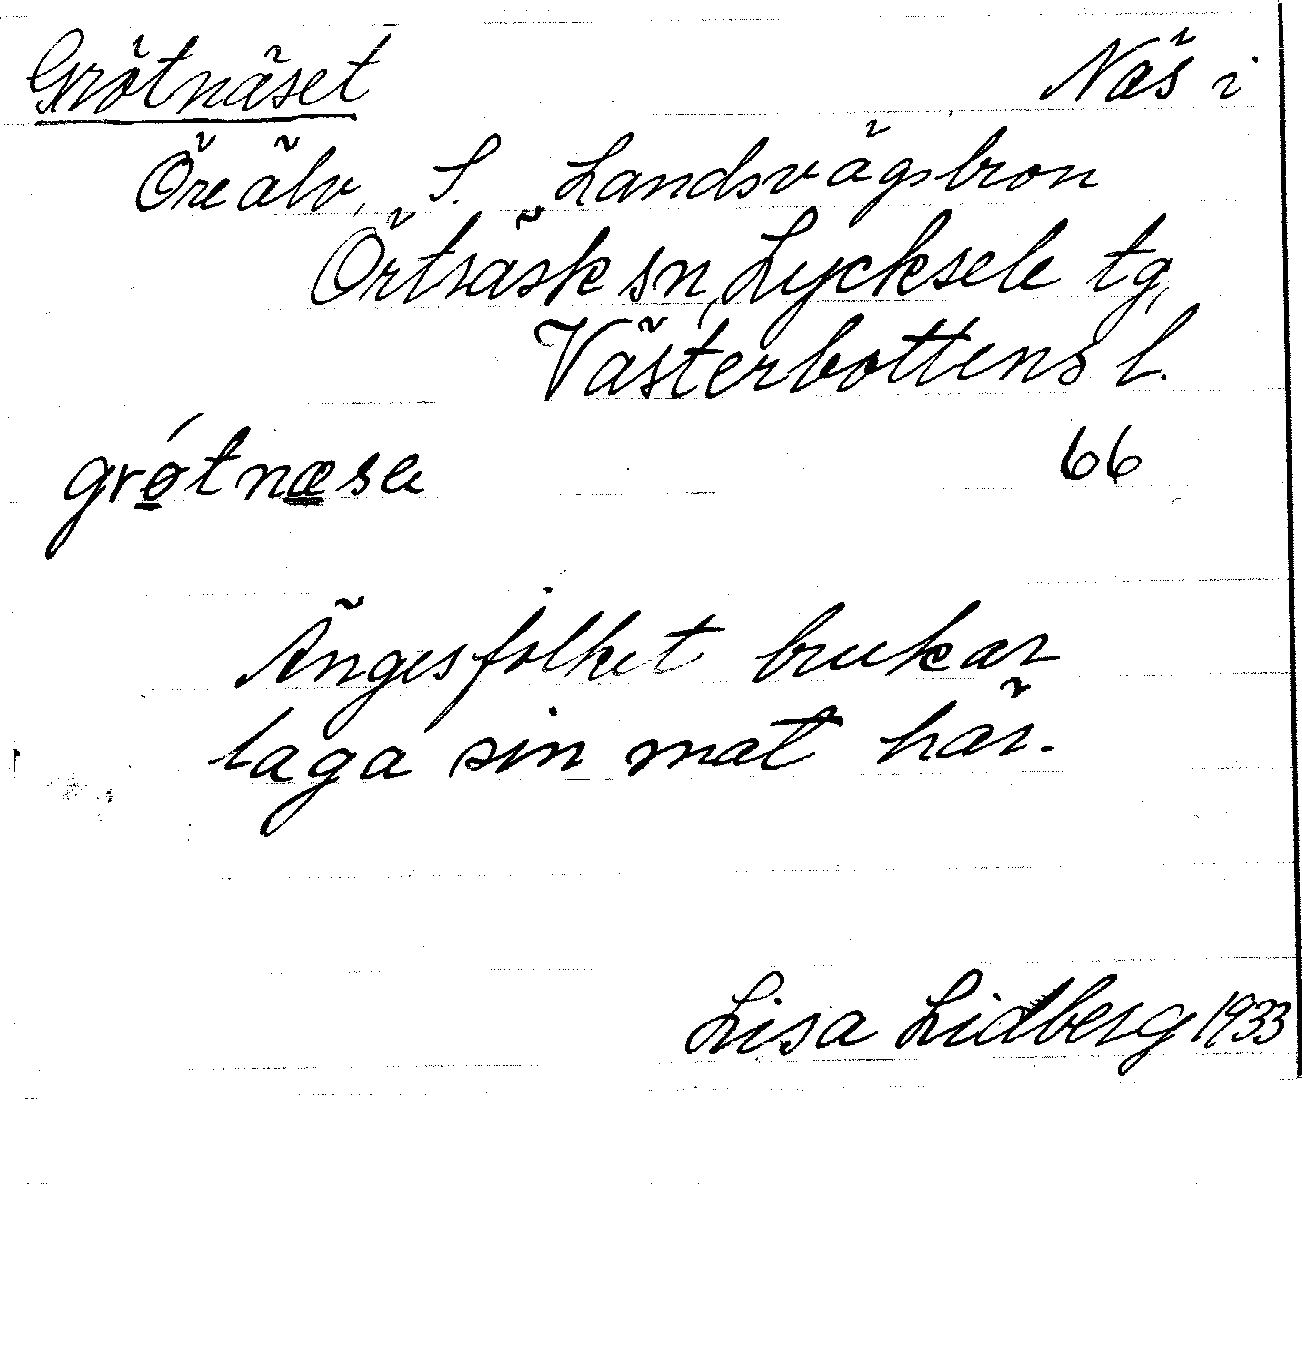 Grötnäset Näs i
Öreälv, S. Landsvägsbron
Örtsäsk sn, Lycksele tg,
Västerbottens l.
grǿtnæsa 66
Ängesfolket brukar
laga sin mat här.
Lisa Lidberg 1933